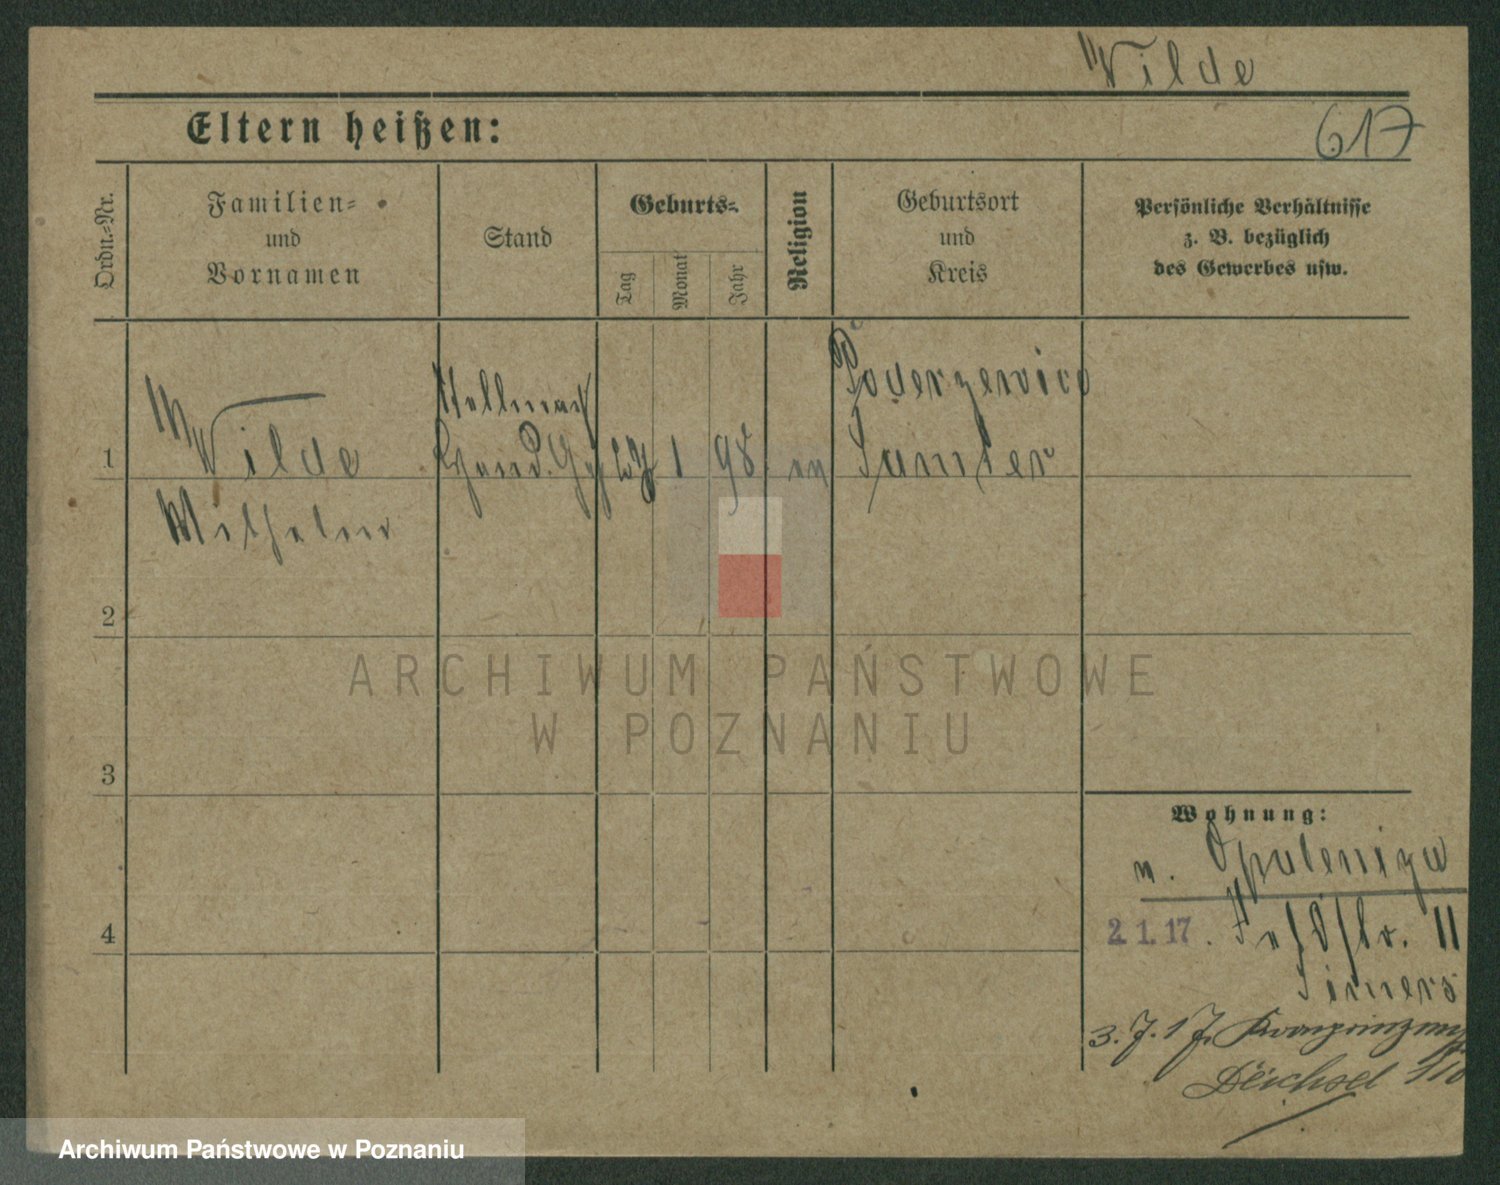 Wilde
617
Eltern heißen:
Ordn.-Nr.
Familien-
und
Vornamen
Stand
Geburts-
Tag
Monat
Jahr
Religion
Geburtsort
und
Kreis
Persönliche Verhältnisse
z. B. bezüglich
des Gewerbes usw.
1
Wilde
Wilhelm
1
98
Samter
2
3
4
ARCHIWUM PAŃSTWOWE
W POZNANIU
Wohnung:
n. Opaleniza
2. 1. 17.
11
3. 7. 17. Kronprinzen
Deichsel
Archiwum Państwowe w Poznaniu